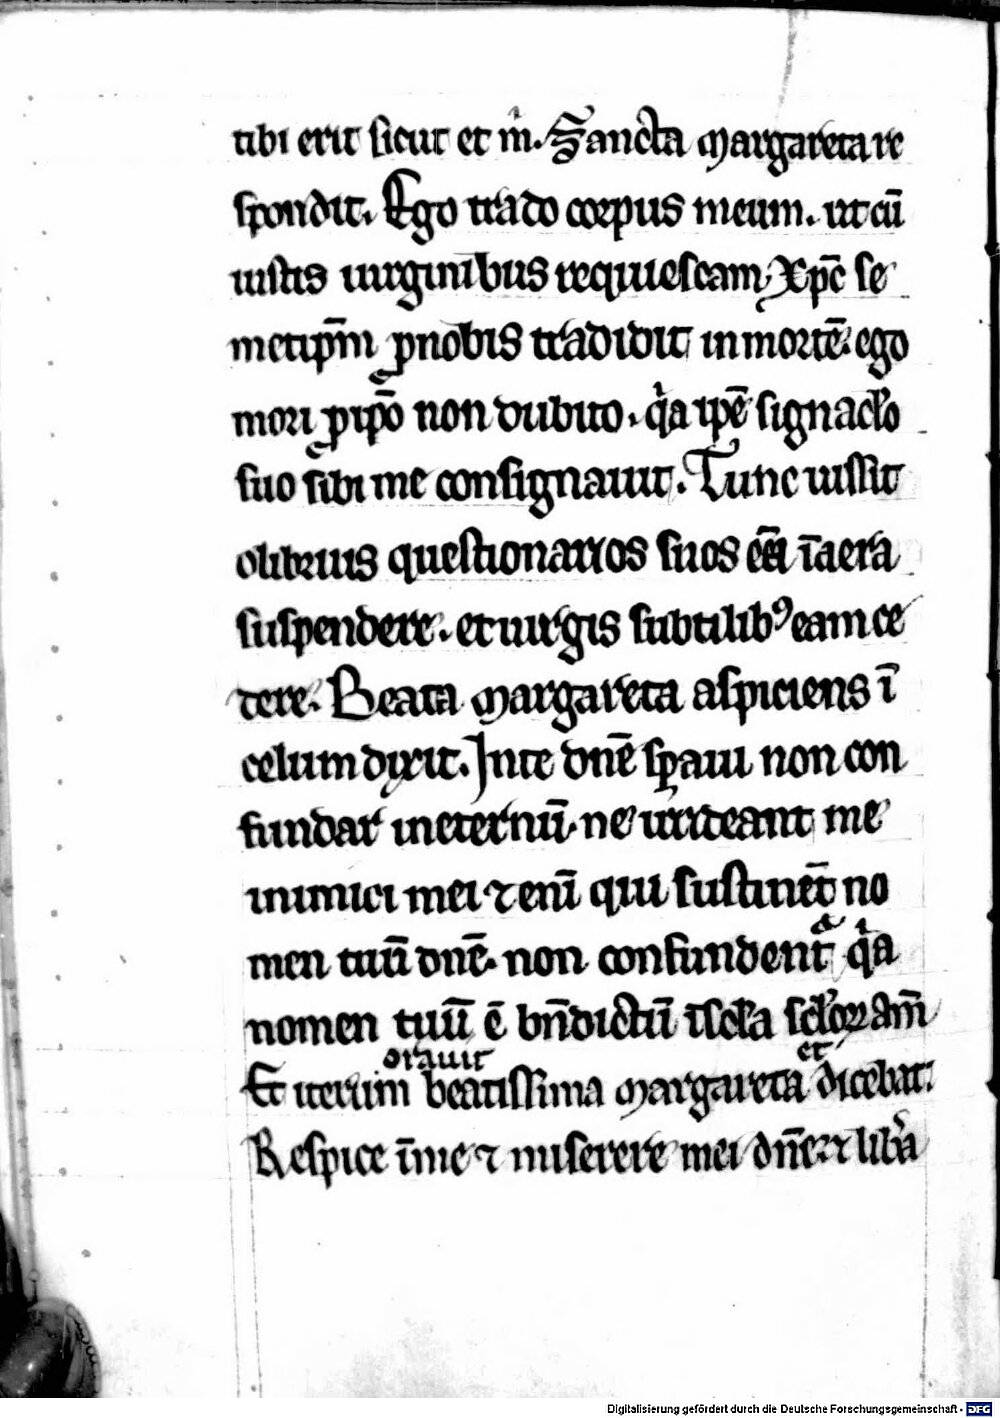 tibi erit sicut et m̍. Sancta margareta re
spondit. Ego trado corpus meum. ut cū
iustis uirginibus requiescam. Xp̄c se
metip̄m ꝓ nobis tradidit in mortē. ego
mori ꝓ ip̄o non dubito. qͥa ip̄e signac̄lo
suo sibi me consignauit. Tunc iussit
olibrius questionarios suos eā ī aera
suspendere. et uirgis subtilibꝰ eam ce
dere. Beata margareta aspiciens ī
celum dixit. In te dn̄e sꝑaui non con
fundar in eternū. ne irrideant me
inimici mei ⁊ enī qui sustinēt no
men tuū dn̄e. non confundentᷣ qͥa
nomen tuū ē bn̄dictū ī sc̄la sc̄loꝝ am̄
orauit et
Et iterum beatissima margareta dicebat.
Respice ī me ⁊ miserere mei dn̄e. ⁊ lib̄a
Digitalisierung gefördert durch die Deutsche Forschungsgemeinschaft - DFG